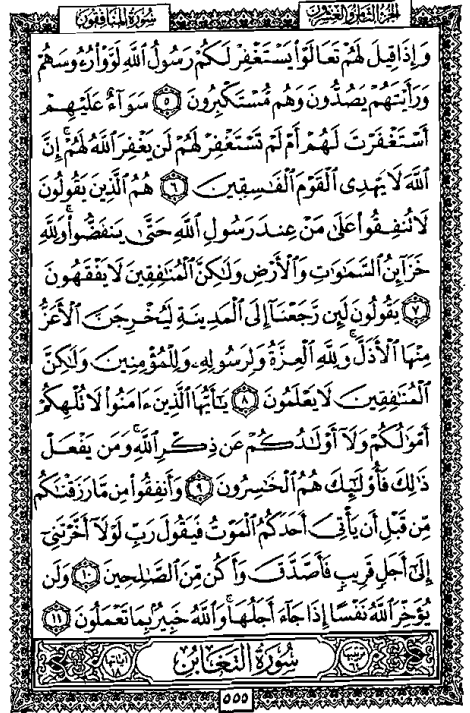 سُورَةُ المُنَافِقُون
الجُزءُ الثَّامِنُ وَالعِشْرُونَ
وَإِذَا قِيلَ لَهُمْ تَعَالَوْا۟ يَسْتَغْفِرْ لَكُمْ رَسُولُ ٱللَّهِ لَوَّوْا۟ رُءُوسَهُمْ
وَرَأَيْتَهُمْ يَصُدُّونَ وَهُم مُّسْتَكْبِرُونَ ٥ سَوَآءٌ عَلَيْهِمْ
أَسْتَغْفَرْتَ لَهُمْ أَمْ لَمْ تَسْتَغْفِرْ لَهُمْ لَن يَغْفِرَ ٱللَّهُ لَهُمْ ۚ إِنَّ
ٱللَّهَ لَا يَهْدِى ٱلْقَوْمَ ٱلْفَـٰسِقِينَ ٦ هُمُ ٱلَّذِينَ يَقُولُونَ
لَا تُنفِقُوا۟ عَلَىٰ مَنْ عِندَ رَسُولِ ٱللَّهِ حَتَّىٰ يَنفَضُّوا۟ ۗ وَلِلَّهِ
خَزَآئِنُ ٱلسَّمَـٰوَٰتِ وَٱلْأَرْضِ وَلَـٰكِنَّ ٱلْمُنَـٰفِقِينَ لَا يَفْقَهُونَ
٧ يَقُولُونَ لَئِن رَّجَعْنَآ إِلَى ٱلْمَدِينَةِ لَيُخْرِجَنَّ ٱلْأَعَزُّ
مِنْهَا ٱلْأَذَلَّ ۚ وَلِلَّهِ ٱلْعِزَّةُ وَلِرَسُولِهِۦ وَلِلْمُؤْمِنِينَ وَلَـٰكِنَّ
ٱلْمُنَـٰفِقِينَ لَا يَعْلَمُونَ ٨ يَـٰٓأَيُّهَا ٱلَّذِينَ ءَامَنُوا۟ لَا تُلْهِكُمْ
أَمْوَٰلُكُمْ وَلَآ أَوْلَـٰدُكُمْ عَن ذِكْرِ ٱللَّهِ ۚ وَمَن يَفْعَلْ
ذَٰلِكَ فَأُو۟لَـٰٓئِكَ هُمُ ٱلْخَـٰسِرُونَ ٩ وَأَنفِقُوا۟ مِن مَّا رَزَقْنَـٰكُم
مِّن قَبْلِ أَن يَأْتِىَ أَحَدَكُمُ ٱلْمَوْتُ فَيَقُولَ رَبِّ لَوْلَآ أَخَّرْتَنِىٓ
إِلَىٰٓ أَجَلٍ قَرِيبٍ فَأَصَّدَّقَ وَأَكُن مِّنَ ٱلصَّـٰلِحِينَ ١٠ وَلَن
يُؤَخِّرَ ٱللَّهُ نَفْسًا إِذَا جَآءَ أَجَلُهَا ۚ وَٱللَّهُ خَبِيرٌۢ بِمَا تَعْمَلُونَ ١١
سُورَةُ التَّغَابُنِ
آياتها ١٨
٥٥٥